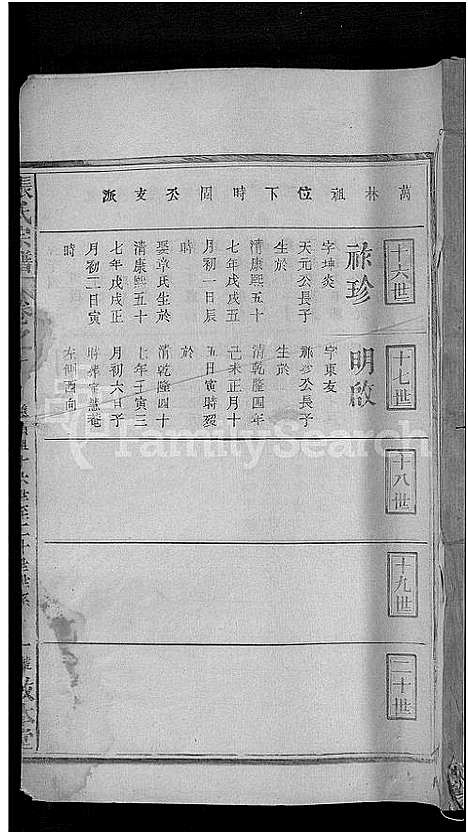 萬林祖位下時周公支派
十六世
祿珍
字坤炎
天元公長子
生於
清康熙五十
七年戊戌五
月初一日辰
時
娶章氏生於
清康熙五十
七年戊戌正
月初二日寅
時
十七世
明啟
字東友
祿珍公長子
生於
清乾隆四年
己未正月十
五日寅時歿
於
清乾隆四十
七年壬寅三
月初六日子
時葬
左側酉向
十八世
十九世
二十世
張氏宗譜
FamilySearch